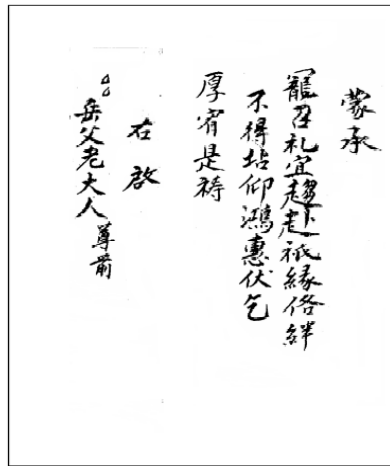 蒙承
寵召礼宜趨赴祇緣俗絆
不得坫仰鴻惠伏乞
厚宥是禱
右啟
岳父老大人尊前